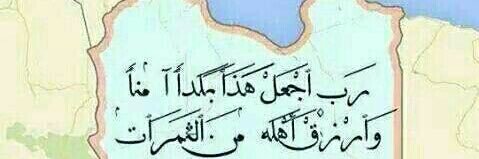 رَب اجْعَلْ هَذَا بَلَداً آمِناً
وَارْزُقْ أَهْلَه مِنَ الثَّمَرَات